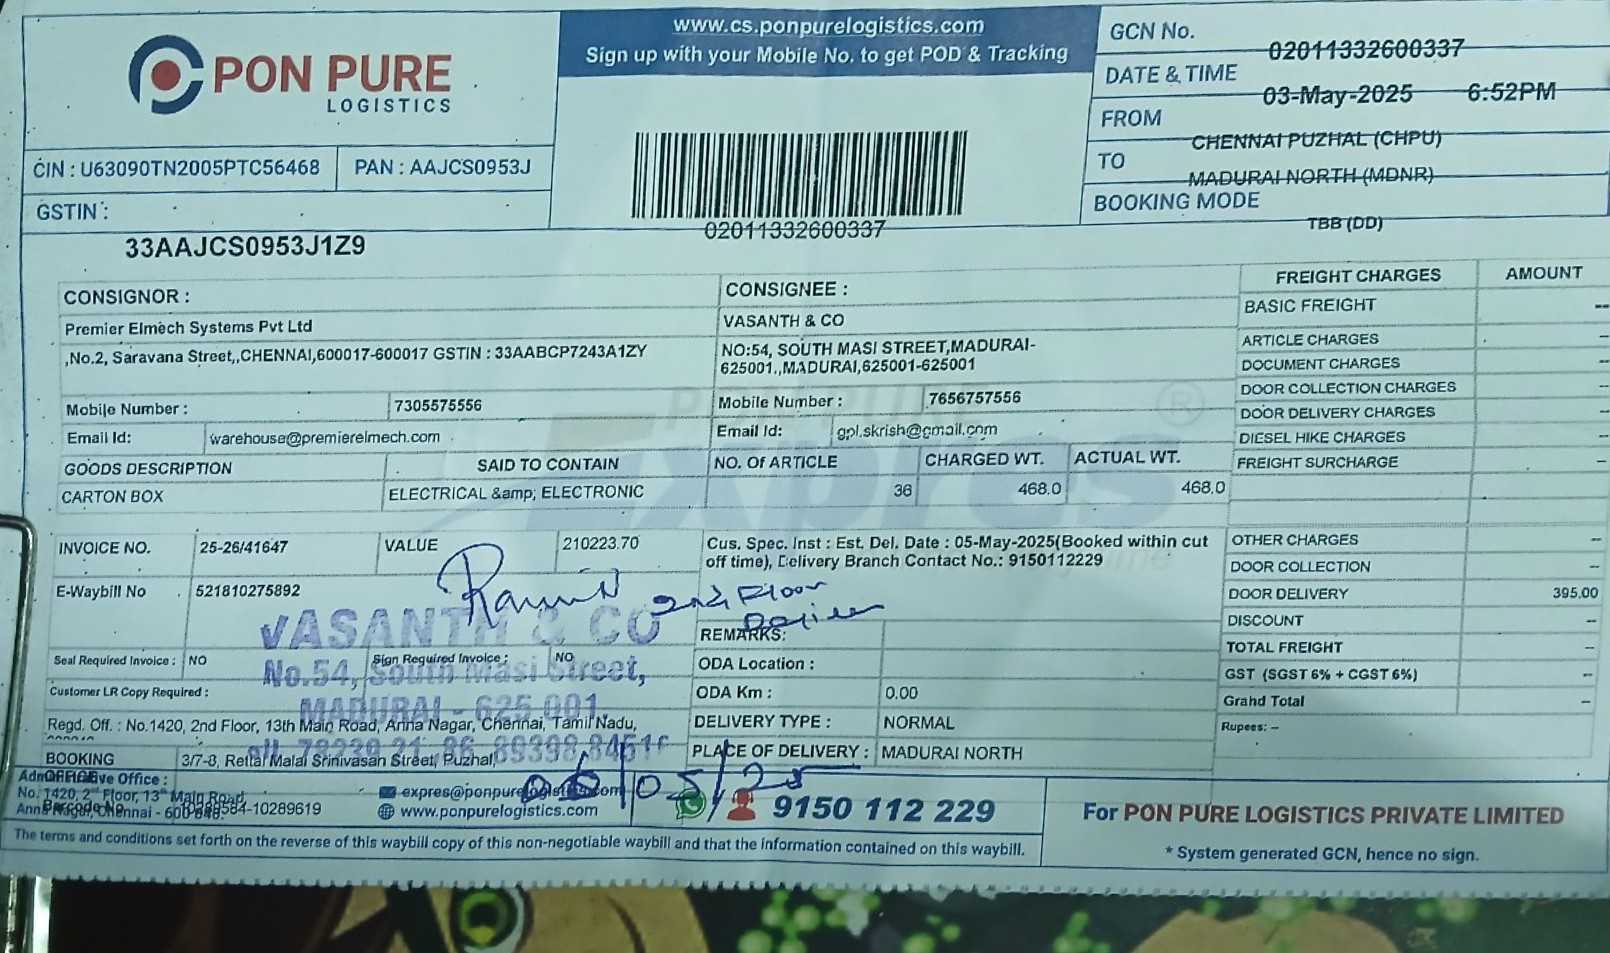 PON PURE
LOGISTICS
www.cs.ponpurelogistics.com
Sign up with your Mobile No. to get POD & Tracking
02011332600337
GCN No.
02011332600337
DATE & TIME
03-May-2025 6:52PM
FROM
CHENNAI PUZHAL (CHPU)
TO
MADURAI NORTH (MDNR)
BOOKING MODE
TBB (DD)
CIN : U63090TN2005PTC56468 PAN : AAJCS0953J
GSTIN :
33AAJCS0953J1Z9
CONSIGNOR :
Premier Elmech Systems Pvt Ltd
,No.2, Saravana Street,,CHENNAI,600017-600017 GSTIN : 33AABCP7243A1ZY
Mobile Number : 7305575556
Email Id: warehouse@premierelmech.com
CONSIGNEE :
VASANTH & CO
NO:54, SOUTH MASI STREET,MADURAI-
625001.,MADURAI,625001-625001
Mobile Number : 7656757556
Email Id: gpl.skrish@gmail.com
GOODS DESCRIPTION SAID TO CONTAIN NO. Of ARTICLE CHARGED WT. ACTUAL WT.
CARTON BOX ELECTRICAL &amp; ELECTRONIC 36 468.0 468.0
FREIGHT CHARGES AMOUNT
BASIC FREIGHT --
ARTICLE CHARGES --
DOCUMENT CHARGES --
DOOR COLLECTION CHARGES --
DOOR DELIVERY CHARGES --
DIESEL HIKE CHARGES --
FREIGHT SURCHARGE --
OTHER CHARGES --
DOOR COLLECTION --
DOOR DELIVERY 395.00
DISCOUNT --
TOTAL FREIGHT --
GST (SGST 6% + CGST 6%) --
Grand Total --
Rupees: --
INVOICE NO. 25-26/41647 VALUE 210223.70
E-Waybill No 521810275892
Cus. Spec. Inst : Est. Del. Date : 05-May-2025(Booked within cut
off time), Delivery Branch Contact No.: 9150112229
2nd Floor
VASANTH & CO
No.54, South Masi Street,
MADURAI - 625 001.
Seal Required Invoice : NO Sign Required Invoice : NO
Customer LR Copy Required :
REMARKS:
ODA Location :
ODA Km : 0.00
DELIVERY TYPE : NORMAL
PLACE OF DELIVERY : MADURAI NORTH
Regd. Off. : No.1420, 2nd Floor, 13th Main Road, Anna Nagar, Chennai, Tamil Nadu,
BOOKING OFFICE 3/7-8, Rettai Malai Srinivasan Street, Puzhal,
06/05/25
Administrative Office :
No. 1420, 2nd Floor, 13th Main Road
Anna Nagar, Chennai - 600 040.
Barcode No
expres@ponpurelogistics.com
www.ponpurelogistics.com
9150 112 229
For PON PURE LOGISTICS PRIVATE LIMITED
* System generated GCN, hence no sign.
The terms and conditions set forth on the reverse of this waybill copy of this non-negotiable waybill and that the information contained on this waybill.